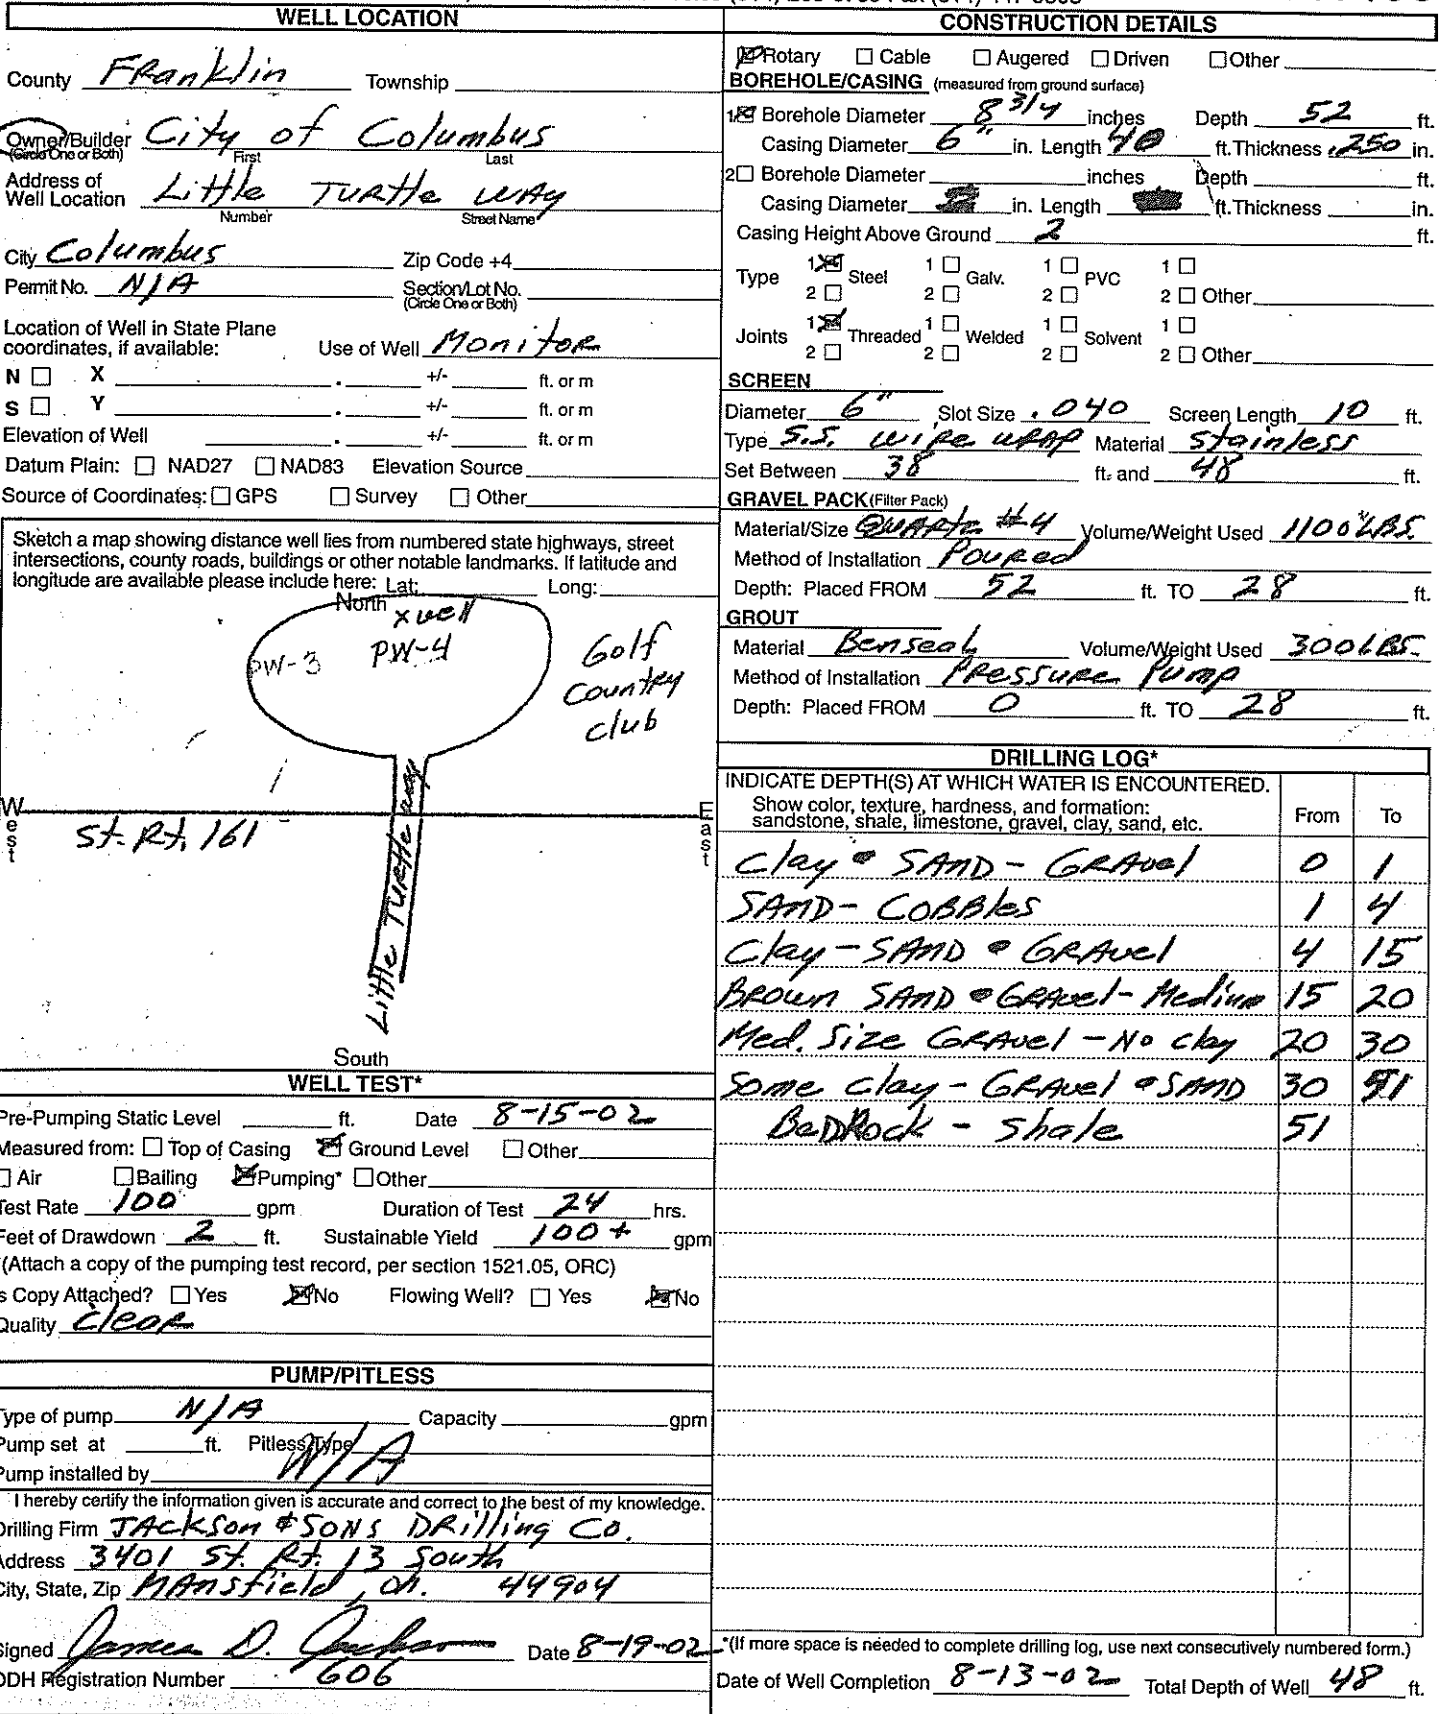 WELL LOCATION
County Franklin Township
Owner/Builder City of Columbus
(Circle One or Both) First Last
Address of
Well Location Little Turtle Way
Number Street Name
City Columbus Zip Code +4
Permit No. N/A Section/Lot No.
(Circle One or Both)
Location of Well in State Plane
coordinates, if available: Use of Well Monitor
N ☐ X . +/- ft. or m
S ☐ Y . +/- ft. or m
Elevation of Well . +/- ft. or m
Datum Plain: ☐ NAD27 ☐ NAD83 Elevation Source
Source of Coordinates: ☐ GPS ☐ Survey ☐ Other
Sketch a map showing distance well lies from numbered state highways, street
intersections, county roads, buildings or other notable landmarks. If latitude and
longitude are available please include here: Lat: Long:
North
x well
PW-3 PW-4
Golf
Country
club
West
St. Rt. 161
East
Little Turtle Way
South
WELL TEST*
Pre-Pumping Static Level ft. Date 8-15-02
Measured from: ☐ Top of Casing ☒ Ground Level ☐ Other
☐ Air ☐ Bailing ☒ Pumping* ☐ Other
Test Rate 100 gpm Duration of Test 24 hrs.
Feet of Drawdown 2 ft. Sustainable Yield 100+ gpm
(Attach a copy of the pumping test record, per section 1521.05, ORC)
Is Copy Attached? ☐ Yes ☒ No Flowing Well? ☐ Yes ☒ No
Quality Clear
PUMP/PITLESS
Type of pump N/A Capacity gpm
Pump set at ft. Pitless Type
Pump installed by N/A
I hereby certify the information given is accurate and correct to the best of my knowledge.
Drilling Firm Jackson & Sons Drilling Co.
Address 3401 St. Rt. 13 South
City, State, Zip Mansfield, Oh. 44904
Signed James D. Jackson Date 8-19-02
ODH Registration Number 606
CONSTRUCTION DETAILS
☒ Rotary ☐ Cable ☐ Augered ☐ Driven ☐ Other
BOREHOLE/CASING (measured from ground surface)
1 ☒ Borehole Diameter 8 3/4 inches Depth 52 ft.
Casing Diameter 6" in. Length 40 ft. Thickness .250 in.
2 ☐ Borehole Diameter inches Depth ft.
Casing Diameter in. Length ft. Thickness in.
Casing Height Above Ground 2 ft.
Type 1 ☒ Steel 1 ☐ Galv. 1 ☐ PVC 1 ☐
2 ☐ 2 ☐ 2 ☐ 2 ☐ Other
Joints 1 ☒ Threaded 1 ☐ Welded 1 ☐ Solvent 1 ☐
2 ☐ 2 ☐ 2 ☐ 2 ☐ Other
SCREEN
Diameter 6" Slot Size .040 Screen Length 10 ft.
Type S.S. wire wrap Material Stainless
Set Between 38 ft. and 48 ft.
GRAVEL PACK (Filter Pack)
Material/Size Quartz #4 Volume/Weight Used 1100 LBS.
Method of Installation Poured
Depth: Placed FROM 52 ft. TO 28 ft.
GROUT
Material Benseal Volume/Weight Used 300 LBS.
Method of Installation Pressure Pump
Depth: Placed FROM 0 ft. TO 28 ft.
DRILLING LOG*
INDICATE DEPTH(S) AT WHICH WATER IS ENCOUNTERED.
Show color, texture, hardness, and formation:
sandstone, shale, limestone, gravel, clay, sand, etc. From To
Clay & Sand - Gravel 0 1
Sand - Cobbles 1 4
Clay - Sand & Gravel 4 15
Brown Sand & Gravel - Medium 15 20
Med. Size Gravel - No clay 20 30
Some Clay - Gravel & Sand 30 51
Bedrock - Shale 51
*(If more space is needed to complete drilling log, use next consecutively numbered form.)
Date of Well Completion 8-13-02 Total Depth of Well 48 ft.